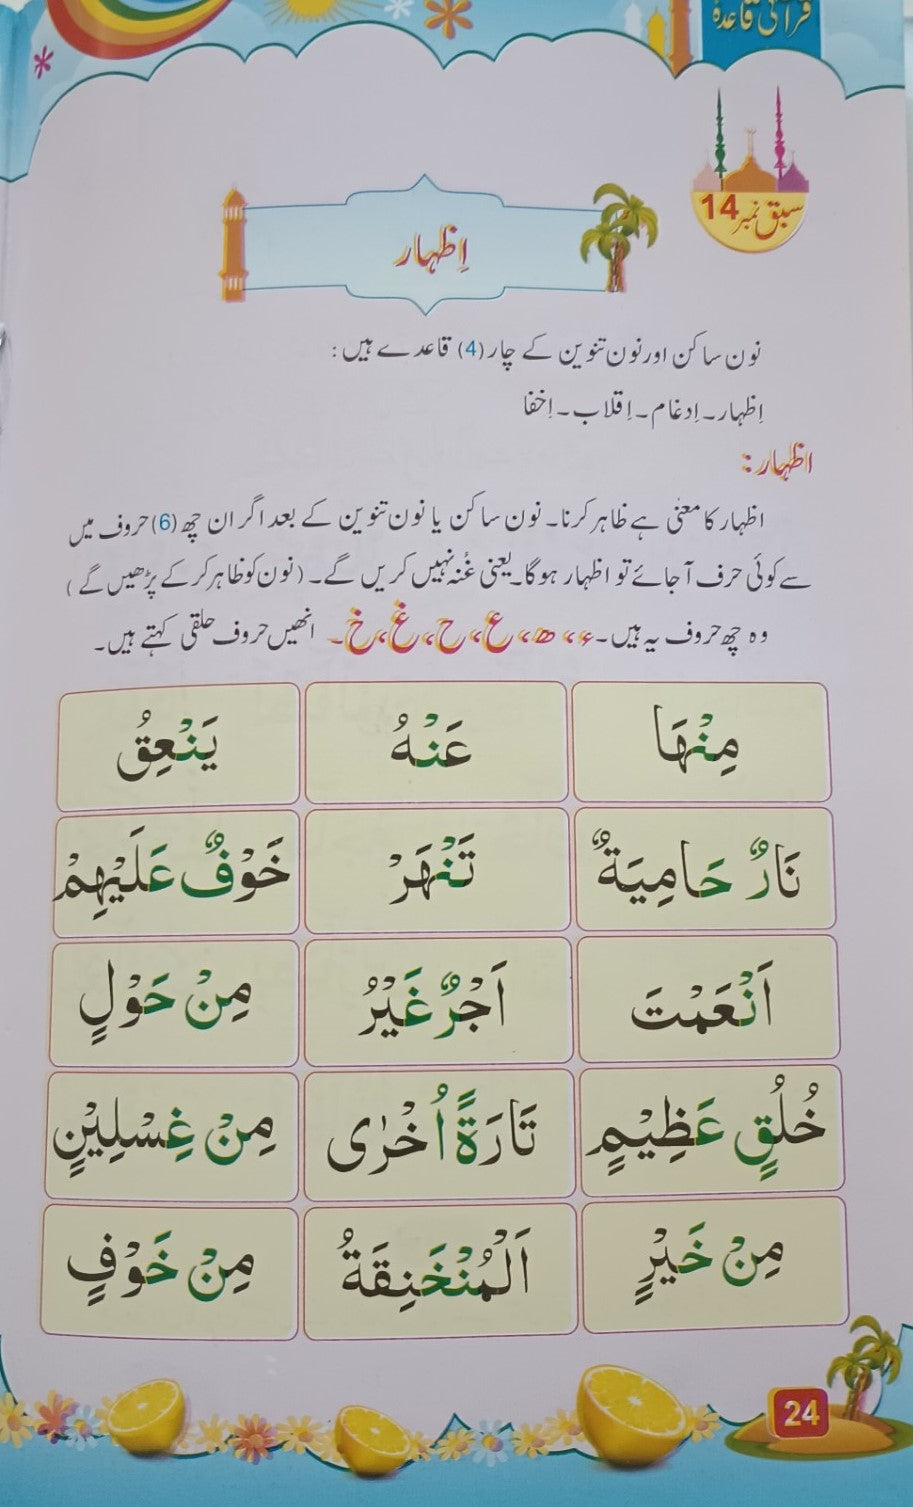 قرآنی قاعدہ
سبق نمبر 14
اِظہار
نون ساکن اور نون تنوین کے چار (4) قاعدے ہیں:
اِظہار۔ اِدغام۔ اِقلاب۔ اِخفا
اظہار:
اظہار کا معنٰی ہے ظاہر کرنا۔ نون ساکن یا نون تنوین کے بعد اگر ان چھ (6) حروف میں
سے کوئی حرف آجائے تو اظہار ہوگا۔ یعنی غُنہ نہیں کریں گے۔ (نون کو ظاہر کرکے پڑھیں گے)
وہ چھ حروف یہ ہیں۔ ء، ھ، ع، ح، غ، خ۔ انھیں حروف حلقی کہتے ہیں۔
مِنْهَا عَنْهُ يَنْعِقُ
نَارٌ حَامِيَةٌ تَنْهَرْ خَوْفٌ عَلَيْهِمْ
اَنْعَمْتَ اَجْرٌ غَيْرُ مِنْ حَوْلٍ
خُلُقٍ عَظِيْمٍ تَارَةً اُخْرٰى مِنْ غِسْلِيْنٍ
مِنْ خَيْرٍ اَلْمُنْخَنِقَةُ مِنْ خَوْفٍ
24